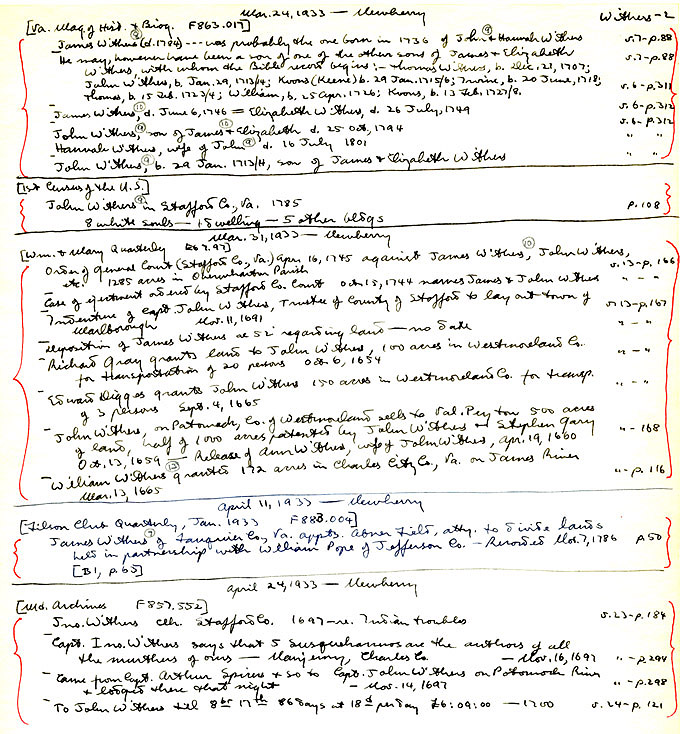 Mar. 24, 1933 — Newberry Withers-2
[Va. Mag of Hist. & Biog. F863.017]
James Withers ⑨ (d. 1784) --- was probably the one born in 1736 of John ⑨ & Hannah Withers v.7-p.88
He may, however have been a son of one of the other sons of James & Elizabeth v.7-p.88
Withers, with whom the Bible record begins:- Thomas Withers, b. Dec. 21, 1707;
John Withers, b. Jan. 29, 1713/4; Kvons (Keene) b. 29 Jan. 1715/6; b. 20 June, 1718; v.6-p.311
Thomas, b. 15 Feb. 1723/4; William, b. 25 Apr. 1726; Kvons, b. 13 Feb. 1727/8.
James Withers, ⑩ d. June 6, 1746 = Elizabeth Withers, d. 26 July, 1749 v.6-p.312
John Withers, ⑨ son of James ⑩ & Elizabeth d. 25 Oct, 1794 v.6-p.312
Hannah Withers, wife of John ⑨ d. 16 July 1801 " "
John Withers, ⑨ b. 29 Jan. 1713/4, son of James & Elizabeth Withers " "
[1st Census of the U.S.]
John Withers ⑨ in Stafford Co., Va. 1785 p.108
8 white souls — 1 dwelling — 5 other bldgs
Mar. 31, 1933 — Newberry
[Wm. & Mary Quarterly E67.97]
Order of General Court (Stafford Co., Va.) Apr. 16, 1745 against James Withers, ⑩ John Withers, v.13-p.166
etc. 1285 acres in Overwharton Parish
Case of ejectment ordered by Stafford Co. Court Oct. 15, 1744 names James & John Withers " - "
Indenture of Capt. John Withers, Trustee of County of Stafford to lay out town of v.13-p.167
Marlborough Nov. 11, 1691
Deposition of James Withers ae 52 regarding land — no date " - "
Richard Gray grants land to John Withers, 100 acres in Westmoreland Co. " - "
for transportation of 20 persons Oct 6, 1654
Edward Digges grants John Withers 150 acres in Westmoreland Co. for transp. " - "
of 3 persons Sept. 4, 1665
John Withers, on Patomack, Co. of Westmoreland sells to Val. Peyton 500 acres
of land, half of 1000 acres patented by John Withers & Stephen Gary " - 168
Oct. 13, 1659 — Release of Ann Withers, wife of John Withers, Apr. 19, 1660
William Withers ⑫ granted 172 acres in Charles City Co., Va. on James River " - p.116
Mar. 13, 1665
April 11, 1933 — Newberry
[Filson Club Quarterly, Jan. 1933 F883.004]
James Withers ⑦ of Fauquier Co., Va. appts. Abner Field, atty. to divide lands
held in partnership with William Pope of Jefferson Co. — Recorded Nov. 7, 1786 p.50
[B1, p.65]
April 24, 1933 — Newberry
[Md. Archives F857.552]
Jno. Withers Stafford Co. 1697 - re. Indian troubles v.23-p.184
Capt. Jno. Withers says that 5 Susquehannos are the authors of all
the murthers of ours — Nanjemy, Charles Co. — Nov. 16, 1697 " - p.294
Came from Capt. Arthur Spicer & so to Capt. John Withers on Potomock River " - p.298
& lodged there that night — Nov. 14, 1697
To John Withers til 8br 17th 86 days at 18d per day £6:09:00 — 1700 v.24-p.121